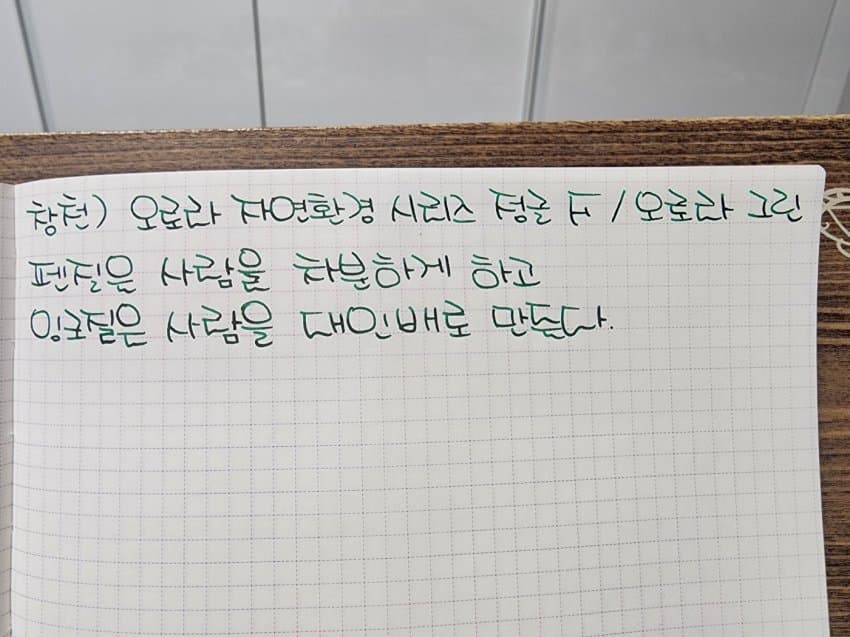 창천) 오로라 자연환경 시리즈 정글 F / 오로라 그린
펜질은 사람을 차분하게 하고
잉크질은 사람을 대인배로 만든다.